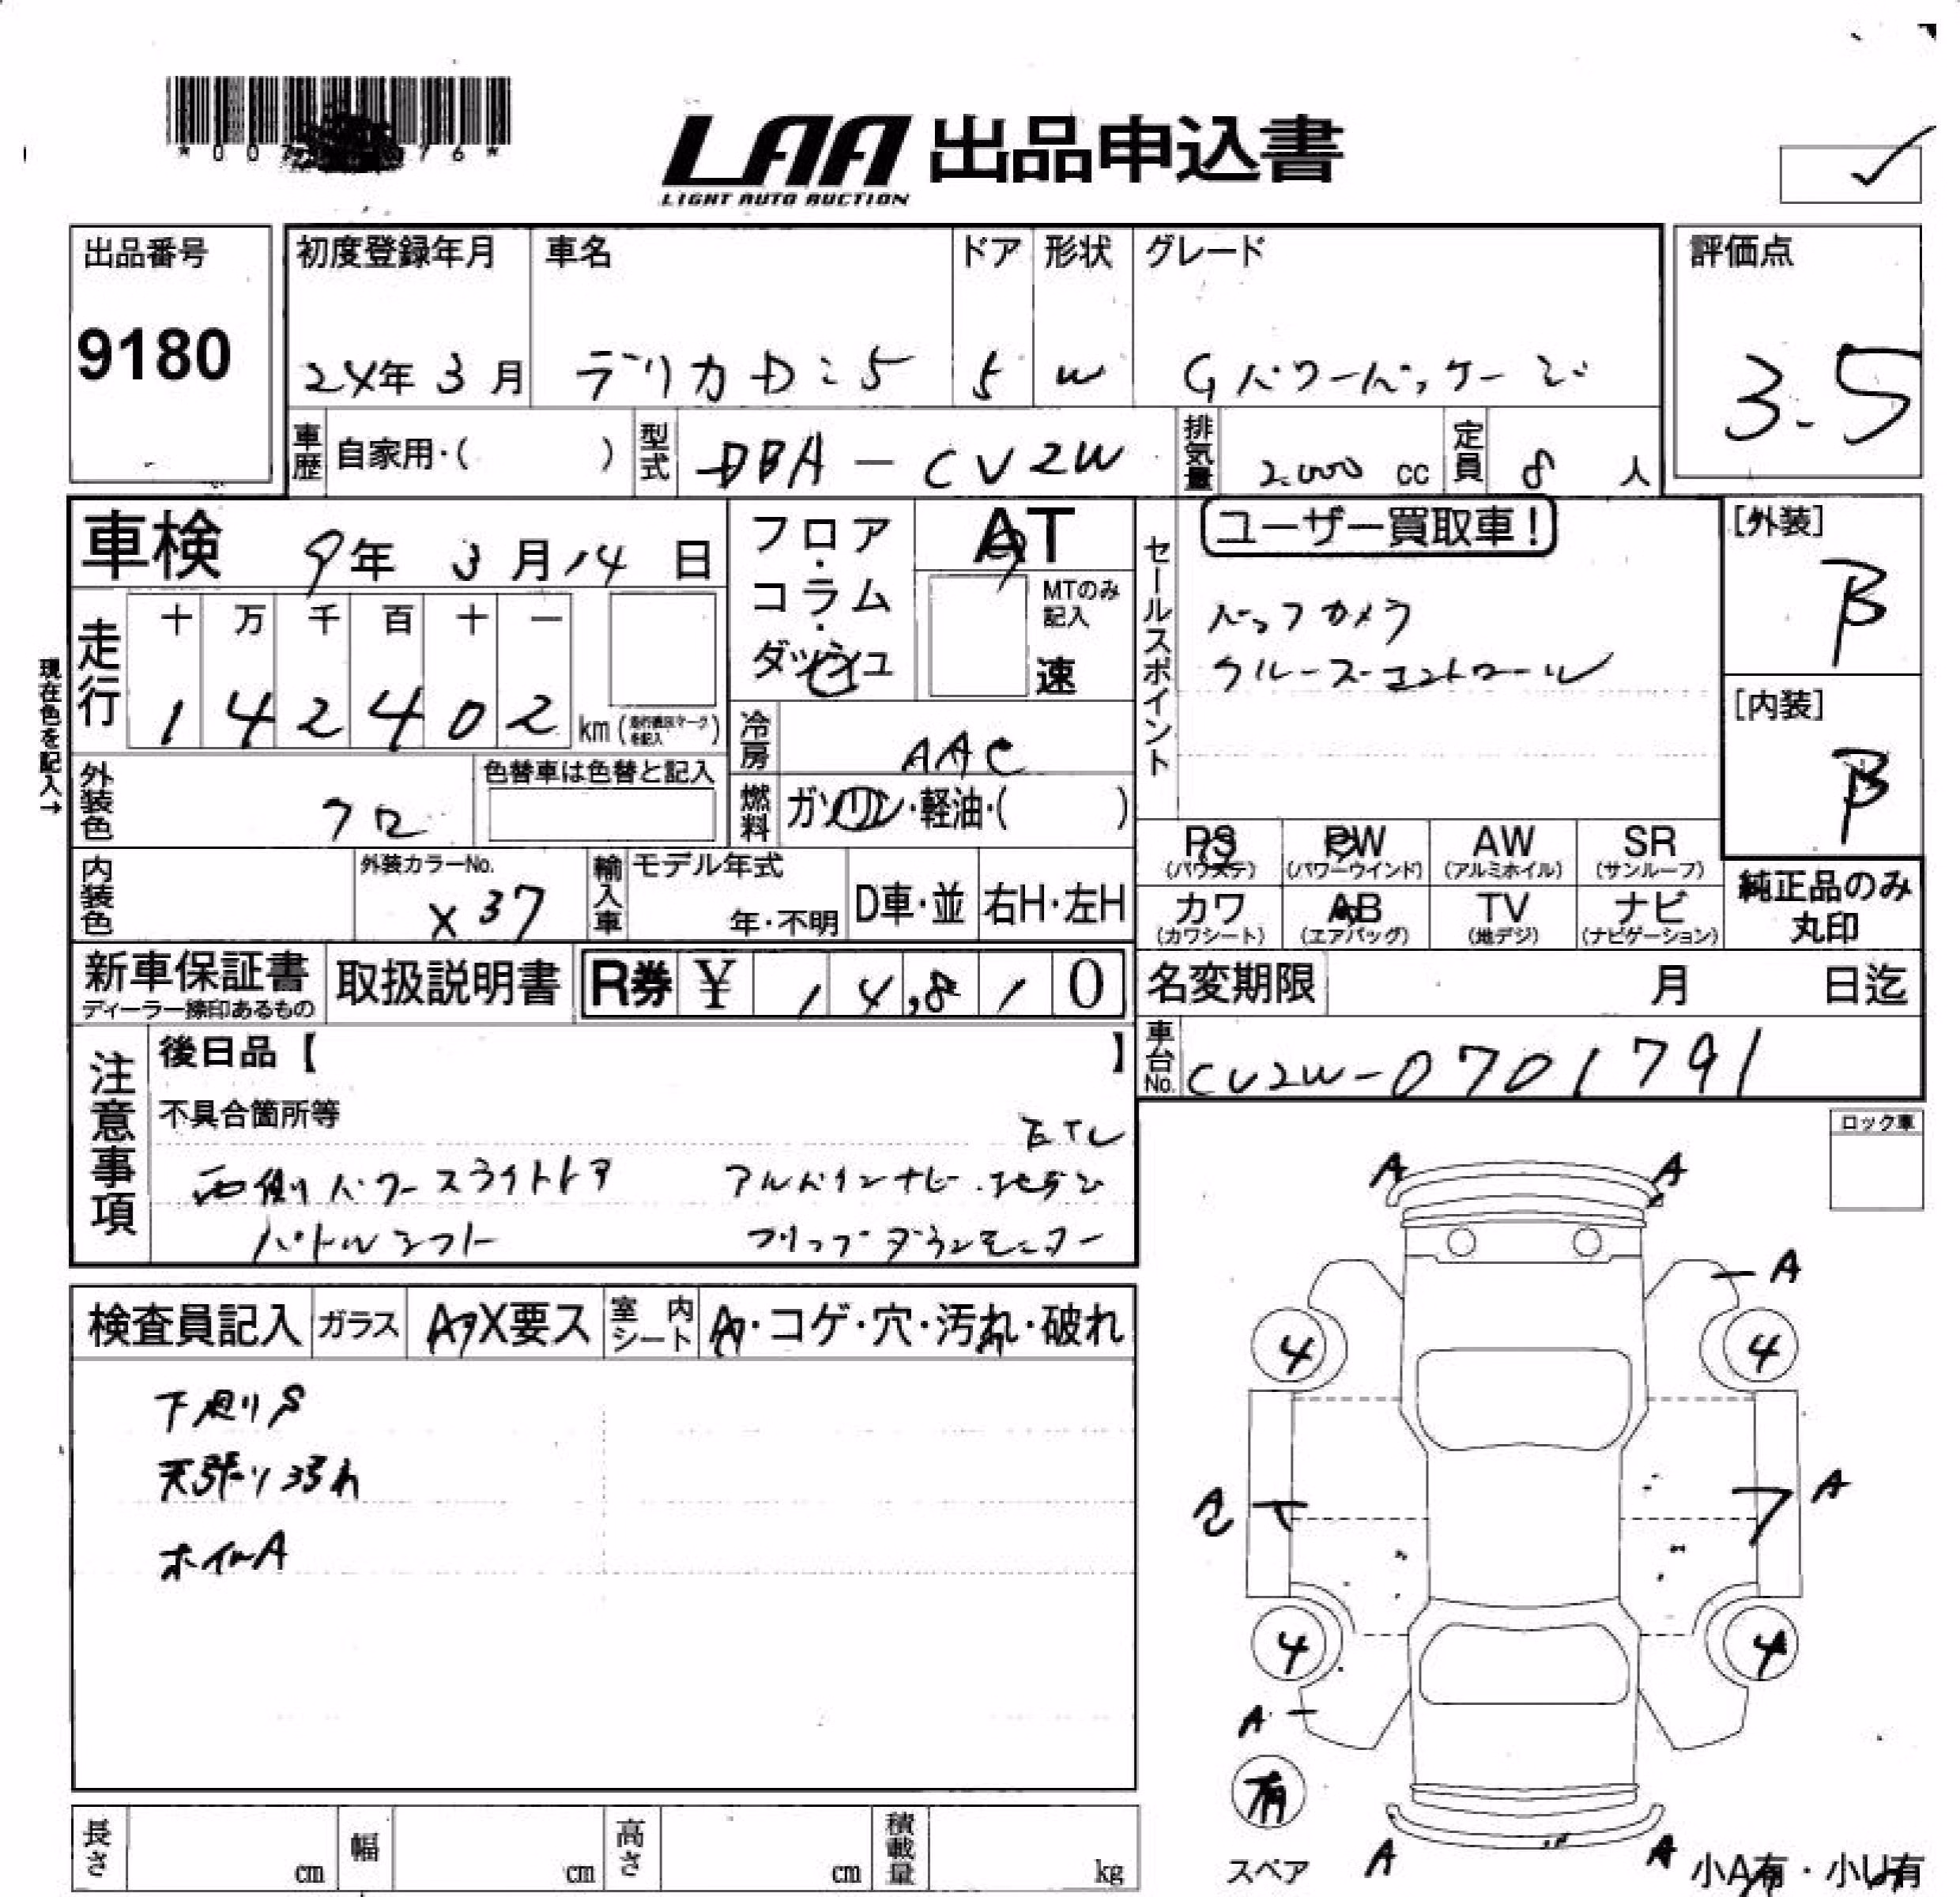 LAA 出品申込書
LIGHT AUTO AUCTION
出品番号
9180
初度登録年月
24年 3月
車名
デリカD:5
ドア
5
形状
W
グレード
Gパワーパッケージ
評価点
3.5
車歴 自家用・( )
型式 DBA-CV2W
排気量 2.000 cc
定員 8 人
車検 9年 3月14日
フロア・コラム・ダッシュ
AT
MTのみ記入
速
走行
十 万 千 百 十 一
1 4 2 4 0 2 km
現在色を記入→
冷房 AAC
外装色 クロ
色替車は色替と記入
燃料 ガソリン・軽油・( )
内装色
外装カラーNo.
X37
輸入車
モデル年式
年・不明
D車・並
右H・左H
セールスポイント
ユーザー買取車!
バックカメラ
クルーズコントロール
[外装]
B
[内装]
B
PS (パワステ)
PW (パワーウインド)
AW (アルミホイル)
SR (サンルーフ)
カワ (カワシート)
AB (エアバッグ)
TV (地デジ)
ナビ (ナビゲーション)
純正品のみ丸印
新車保証書
ディーラー捺印あるもの
取扱説明書
R券 ¥ 14,810
名変期限 月 日迄
車台No. CV2W-0701791
注意事項
後日品【 】
不具合箇所等
両側パワースライドドア アルパインナビ・地デジ
パドルシフト フリップダウンモニター
ロック車
検査員記入
ガラス A・X要ス
室内シート A・コゲ・穴・汚れ・破れ
下廻りS
天張り汚れ
ホイルA
A A
A
4 4
A
4 4
A
有
スペア
A A
小A有・小U有
長さ cm
幅 cm
高さ cm
積載量 kg